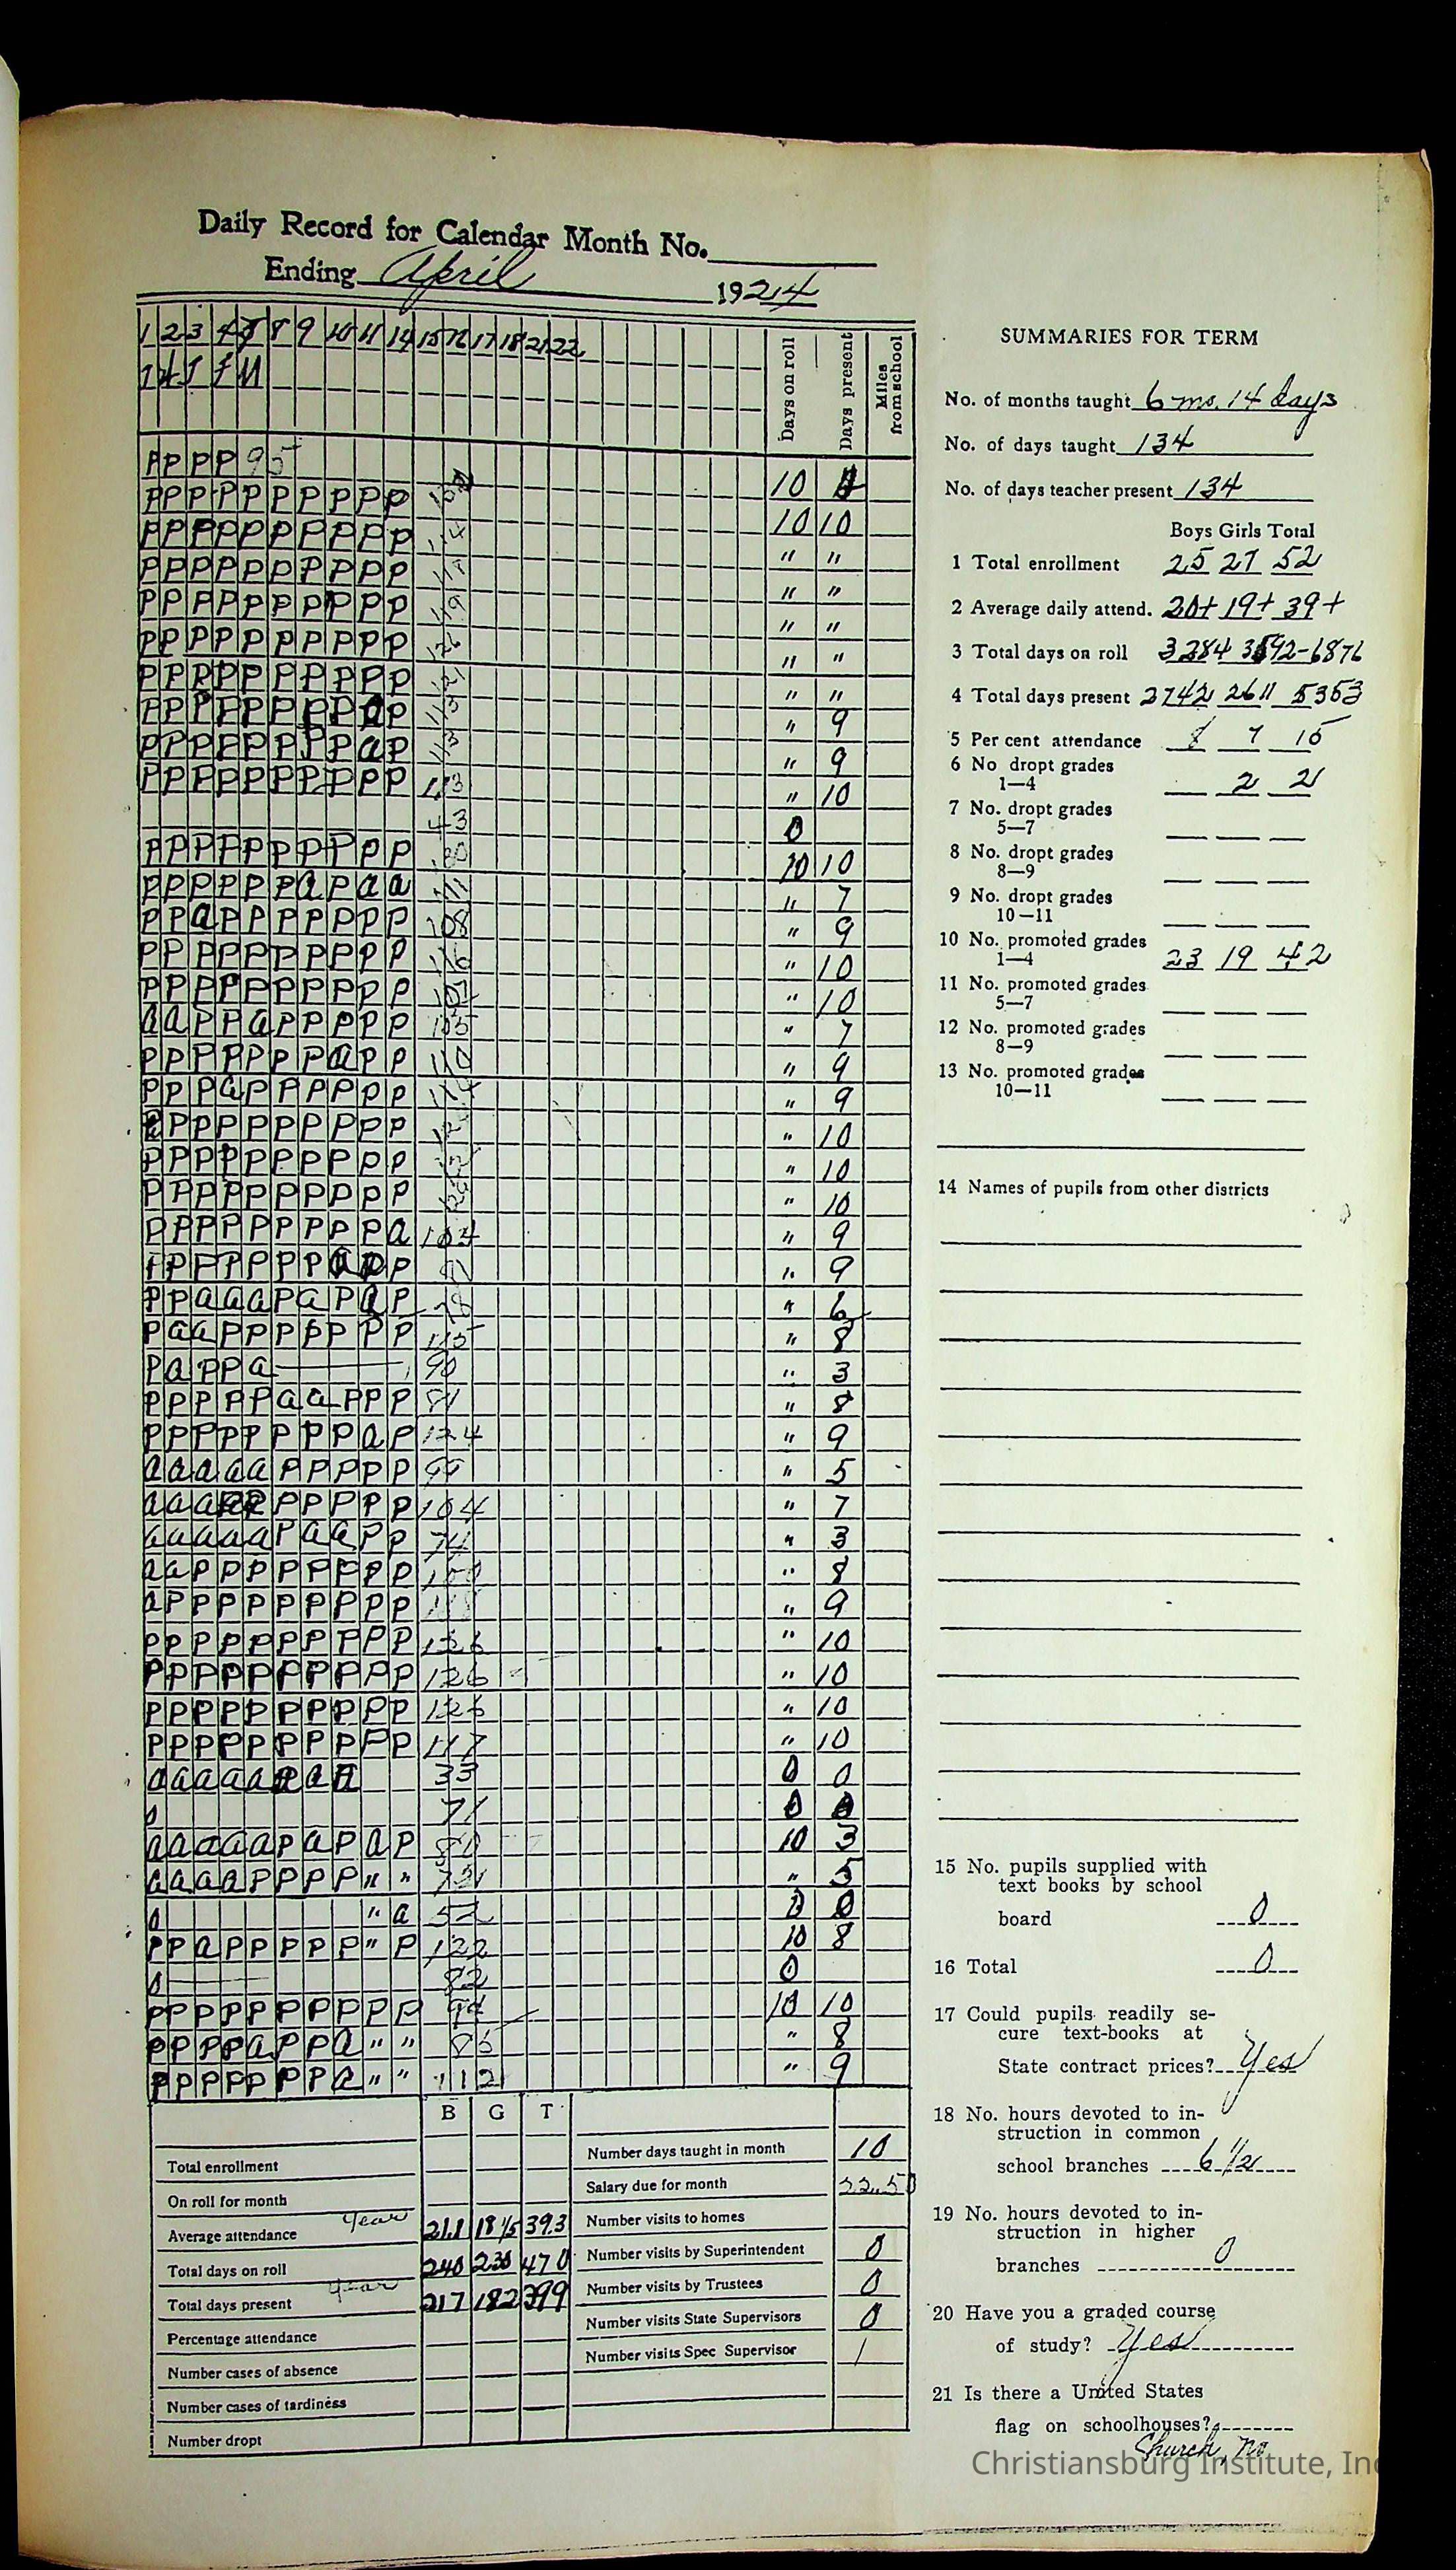 Daily Record for Calendar Month No.
Ending April 1924
1 2 3 4 7 8 9 10 11 14 15 16 17 18 21 22
Days on roll
Days present
Miles from school
P P P P 95
10
P P P P P P P P P P
10 10
P P P P P P P P P P
" "
P P P P P P P P P P
" "
P P P P P P P P P P 119
" "
P P P P P P P P P P 126
" "
P P P P P P P P P P 121
" "
P P P P P P P P a P 113
" 9
P P P P P P P P a P 113
" 9
P P P P P P P P P P
" 10
43
0
P P P P P P P P P P
10 10
P P P P P P a P a a
" 7
P P a P P P P P P P 108
" 9
P P P P P P P P P P 116
" 10
P P P P P P P P P P 107
" 10
a a P P a P P P P P 105
" 7
P P P P P P P a P P 110
" 9
P P P a P P P P P P 114
" 9
P P P P P P P P P
" 10
P P P P P P P P P P
" 10
P P P P P P P P P P
" 10
P P P P P P P P P a 104
" 9
P P P P P P P a P P
" 9
P P a a a P a P a P 78
" 6
P a a P P P P P P P 115
" 8
P a P P a 90
" 3
P P P P P a a P P P 81
" 8
P P P P P P P P a P 124
" 9
a a a a a P P P P P 99
" 5
a a a P P P P P P P 104
" 7
a a a a a P a a P P 74
" 3
a a P P P P P P P P
" 8
a P P P P P P P P P
" 9
P P P P P P P P P P 126
" 10
P P P P P P P P P P 126
" 10
P P P P P P P P P P 126
" 10
P P P P P P P P P P 117
" 10
a a a a a a 33
0 0
0 71
0 0
a a a a a P a P a P 80
10 3
a a a a P P P P " "
" 5
0 " a 52
0 0
P P a P P P P P " P 122
10 8
0 82
0
P P P P P P P P P P
10 10
P P P P a P P a " "
" 8
P P P P P P P a " " 112
" 9
B G T
Total enrollment
On roll for month
Average attendance Year 21.1 18 1/5 39.3
Total days on roll 240 230 470
Total days present Year 217 182 399
Percentage attendance
Number cases of absence
Number cases of tardiness
Number dropt
Number days taught in month 10
Salary due for month 22.50
Number visits to homes
Number visits by Superintendent 0
Number visits by Trustees 0
Number visits State Supervisors 0
Number visits Spec Supervisor 1
SUMMARIES FOR TERM
No. of months taught 6 mo. 14 days
No. of days taught 134
No. of days teacher present 134
Boys Girls Total
1 Total enrollment 25 27 52
2 Average daily attend. 20+ 19+ 39+
3 Total days on roll 3284 3592-6876
4 Total days present 2742 2611 5353
5 Per cent attendance 8 7 15
6 No dropt grades
1—4 2 2
7 No. dropt grades
5—7
8 No. dropt grades
8—9
9 No. dropt grades
10—11
10 No. promoted grades
1—4 23 19 42
11 No. promoted grades
5—7
12 No. promoted grades
8—9
13 No. promoted grades
10—11
14 Names of pupils from other districts
15 No. pupils supplied with
text books by school
board 0
16 Total 0
17 Could pupils readily se-
cure text-books at
State contract prices? Yes
18 No. hours devoted to in-
struction in common
school branches 6 1/2
19 No. hours devoted to in-
struction in higher
branches 0
20 Have you a graded course
of study? Yes
21 Is there a United States
flag on schoolhouses?
Church, no
Christiansburg Institute, Inc